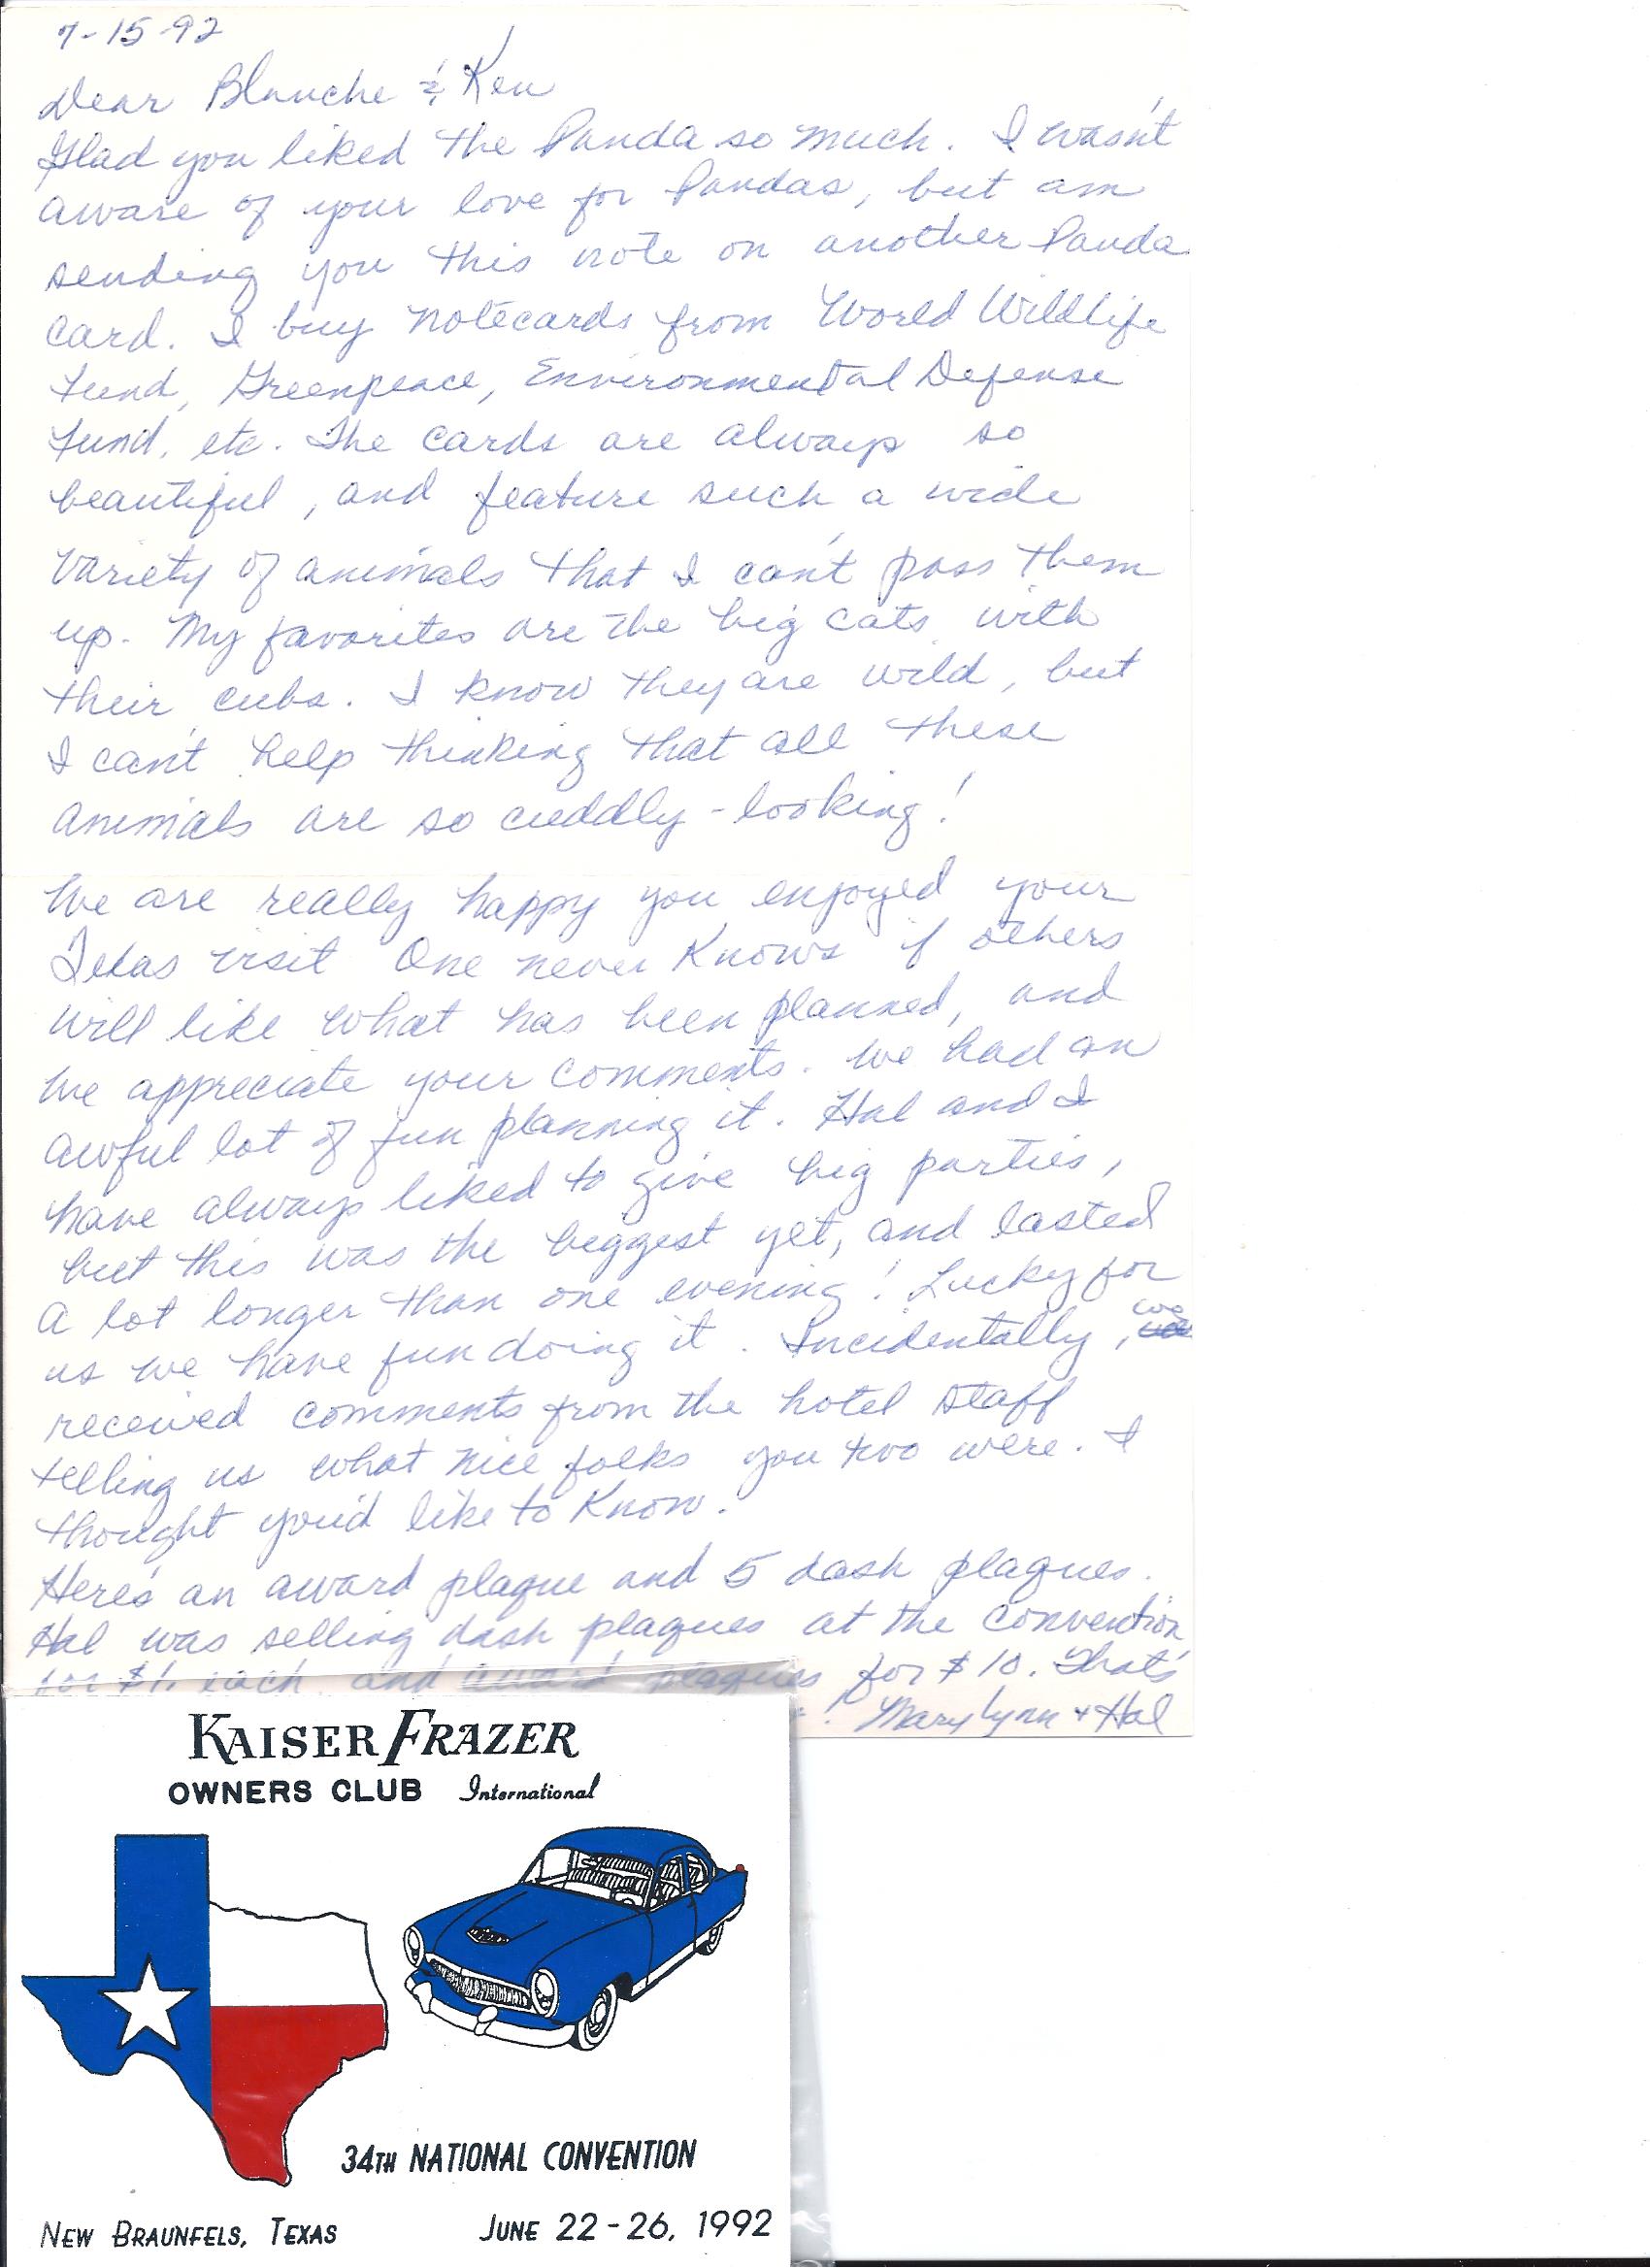 7-15-92
Dear Blanche & Ken
Glad you liked the Panda so much. I wasn't
aware of your love for Pandas, but am
sending you this note on another Panda
card. I buy notecards from World Wildlife
Fund, Greenpeace, Environmental Defense
Fund, etc. The cards are always so
beautiful, and feature such a wide
variety of animals that I can't pass them
up. My favorites are the big cats with
their cubs. I know they are wild, but
I can't help thinking that all these
animals are so cuddly-looking!
We are really happy you enjoyed your
Texas visit One never knows if others
will like what has been planned, and
we appreciate your comments. We had an
awful lot of fun planning it. Hal and I
have always liked to give big parties,
but this was the biggest yet, and lasted
a lot longer than one evening! Lucky for
us we have fun doing it. Incidentally, we
received comments from the hotel staff
telling us what nice folks you two were. I
thought you'd like to know.
Here's an award plaque and 5 dash plaques.
Hal was selling dash plaques at the convention
for $1. each and award plaques for $10. That's
! Mary Lynn + Hal
KAISER FRAZER
OWNERS CLUB International
34TH NATIONAL CONVENTION
NEW BRAUNFELS, TEXAS JUNE 22-26, 1992